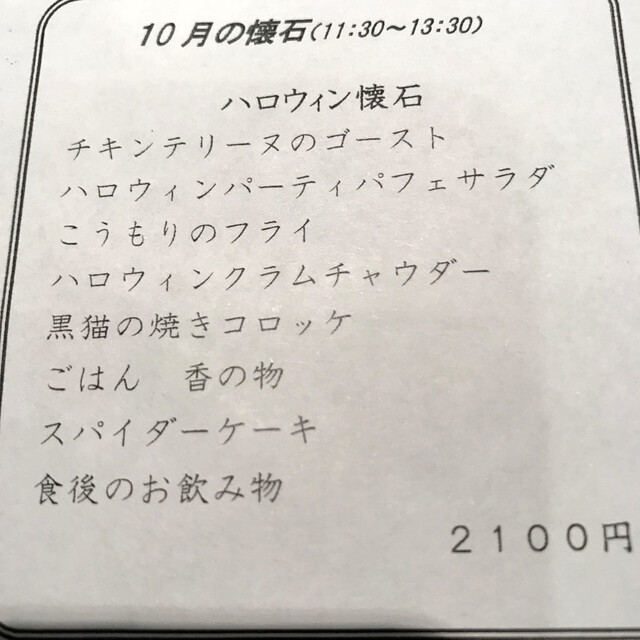 10月の懐石(11:30～13:30)
ハロウィン懐石
チキンテリーヌのゴースト
ハロウィンパーティパフェサラダ
こうもりのフライ
ハロウィンクラムチャウダー
黒猫の焼きコロッケ
ごはん　香の物
スパイダーケーキ
食後のお飲み物
２１００円